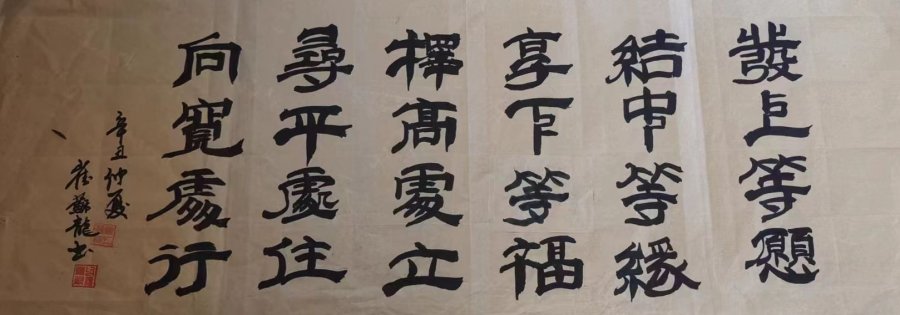 發上等願
結中等緣
享下等福
擇高處立
尋平處住
向寬處行
辛丑仲夏
崔龍書